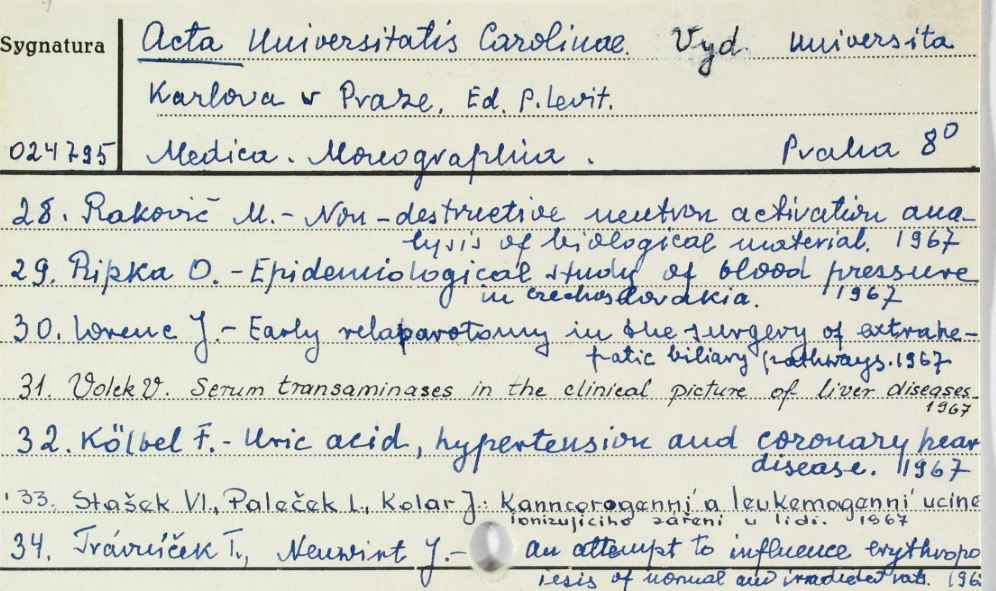 Sygnatura Acta Universitatis Carolinae. Vyd. Universita
Karlova v Praze, Ed. P. Levit.
024795 Medica. Monographia. Praha 8°
28. Raković M. - Non-destructive neutron activation ana-
lysis of biological material. 1967
29. Řipka O. - Epidemiological study of blood pressure
in Czechoslovakia. 1967
30. Lorenc J. - Early relaparotomy in the surgery of extrahe-
patic biliary pathways. 1967
31. Volek V. Serum transaminases in the clinical picture of liver diseases
1967
32. Kölbel F. - Uric acid, hypertension and coronary hear
disease. 1967
33. Stašek Vl., Paleček L., Kolar J.: Kanncorogenní a leukemogenní ucine
ionizujícího záření u lidí. 1967
34. Trávníček T., Neuwirt J. - an attempt to influence erythropo
iesis of normal and irradiated rats. 196